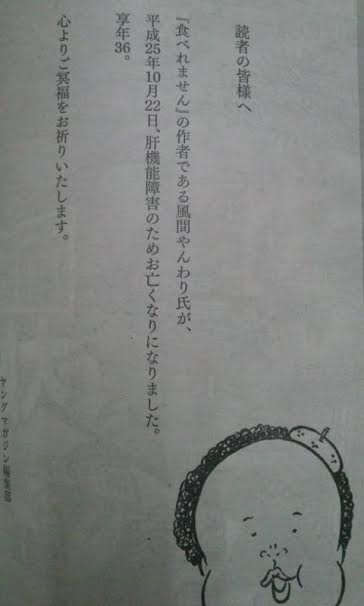 読者の皆様へ
『食べれません』の作者である風間やんわり氏が、
平成25年10月22日、肝機能障害のためお亡くなりになりました。
享年36。
心よりご冥福をお祈りいたします。
ヤングマガジン編集部